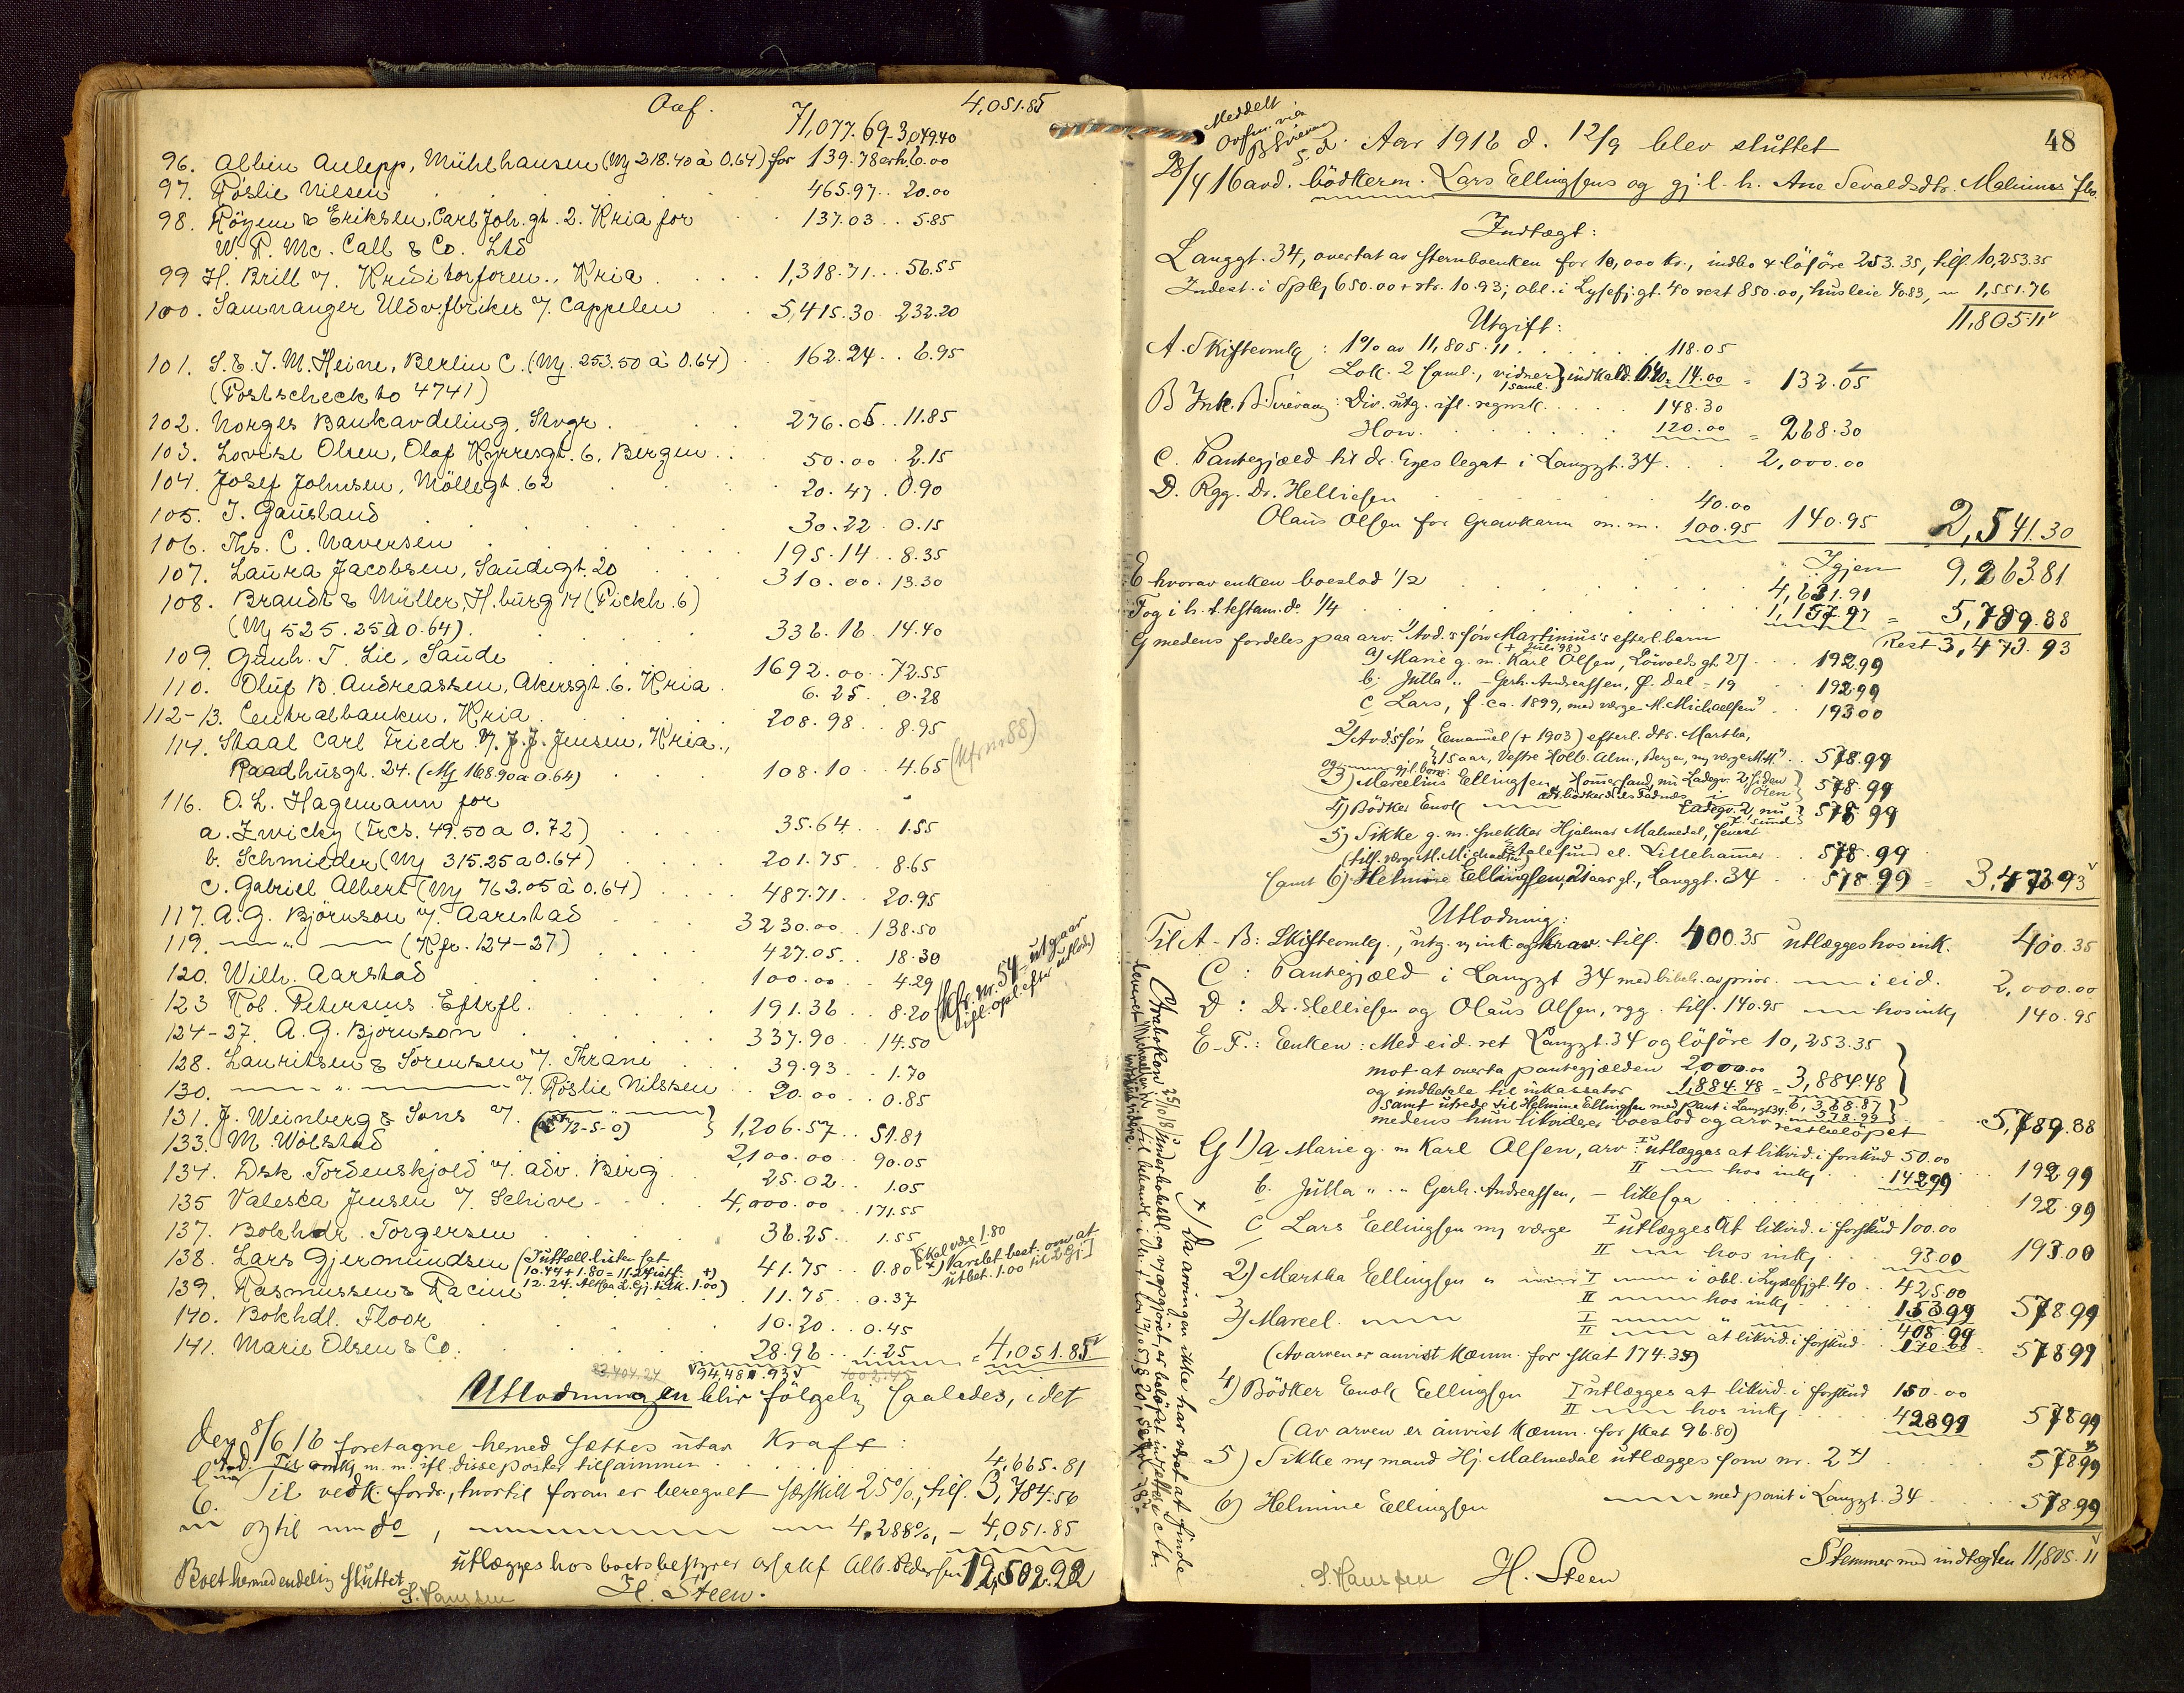 Ovf. 71,077.69 3,079.40 4,051.85
96. Albin Aulepp, Mühlhausen (My 218.40 à 0.64) for 139.78 erh. 6.00
97. Röslie Nilsen 465.97 20.00
98. Röyem & Eriksen, Carl Joh. gt. 2. Kria for 137.03 5.85
W. R. Mc. Call & Co. Ltd
99 H. Brill v/. Kreditorforen., Kria 1,318.71 56.55
100. Samnanger Uldvfbriker v/. Cappelen 5,415.30 232.20
101. S. & J. M. Heine, Berlin C. (My. 253.50 à 0.64) 162.24 6.95
(Postscheckto 4741)
102. Norges Bankavdeling, Stvgr. 276.05 11.85
103. Lovise Olsen, Olaf Kyrresgt. 6, Bergen 50.00 2.15
104. Josef Johnsen, Möllegt. 62 20.47 0.90
105. J. Gausland 30.22 0.15
106. Ths. C. Naversen 195.14 8.35
107. Laura Jacobsen, Saudigt. 20 310.00 13.30
108. Brandt & Müller, H.burg 14 (Pickh. 6)
(My 525.25 à 0.64) 336.16 14.40
109. Gunh. T. Lie, Saude 1692.00 72.55
110. Oluf B. Andreassen, Akersgt. 6. Kria 6.25 0.28
112-13. Centralbanken, Kria 208.98 8.95
114. Staal Carl Friedr. v/. J. J. Jensen, Kria.,
Raadhusgt. 24. (My 168.90 a 0.64) 108.10 4.65 (Kfr. nr 88)
116. O. L. Hagemann for
a. Zwicky (Frcs. 49.50 a 0.72) 35.64 1.55
b. Schmieder (My 315.25 a 0.64) 201.75 8.65
c. Gabriel Albert (My 762.05 à 0.64) 487.71 20.95
117. A. G. Björnson v/. Aarstad 3230.00 138.50
119. — " — (Kfr. 124-27) 427.05 18.30
120. Wilh. Aarstad 100.00 4.29
123 Rob. Petersens Eftrfl. 191.36 8.20 (Kfr. nr. 54 utgaar ifl. opl. efter utlodn.)
124-27. A. G. Björnson 337.90 14.50
128. Lauritsen & Sorensen v/. Thrane 39.93 1.70
130. — " — v/. Röslie Nilssen 20.00 0.85
131. J. Weinberg & Sons v/. — " — 1,206.57 51.81
133. M. Wolstad 2,100.00 90.05
134. Dsk. Tordenskjold v/. adv. Berg 25.02 1.05
135 Valesca Jensen v/. Schive 4,000.00 171.55
137. Bokhdr. Torgersen 36.25 1.55
138. Lars Gjermundsen 41.75 0.80 [Skal være 1.80
139. Rasmussen & Racine 11.75 0.37
140. Bokhdl. Floor 10.20 0.45
141. Marie Olsen & Co. 28.96 1.25 = 4,051.85
94,480.93
Utlodningen blir fölgelig saaledes, idet
den 8/6 16 foretagne herved sættes utav Kraft:
m. m. ifl. disse poster tilsammen 4,665.81
E. Til vedk. fordr., hvortil foran er beregnet særskilt 25%, tils. 3,784.56
— og til — do, — 4,288%, — 4,051.85
utlægges hos boets bestyrer 12,502.22
Boet hermed endelig sluttet
S. Hanssen H. Steen.
48
Meddelt
Aar 1916 d. 12/9 blev sluttet
28/4 16 avd. bödkerm. Lars Ellingsens og gj. l. h. Ane Sevaldsdtr. Malmins fbo.
Indtægt:
Langgt. 34, overtat av Stervboenken for 10,000 kr., indbo & lösöre 253.35, tils. 10,253.35
Indest. i Spbk 650.00 + rtr. 10.93; obl. i Lysefj.gt. 40 rest 850.00, husleie 40.83, — 1,551.76
11,805.11
Utgift:
A. Skifteomk: 1% av 11,805.11 118.05
Lok. 2 saml., vidner 1 saml. indkald. 6.40 = 14.00 = 132.05
B Ink. B. Sirevaag: Div. utg. ifl. regnsk. 148.30
Hon. 120.00 = 268.30
C. Pantegjæld til dr. Eyes legat i Langgt. 34 2,000.00
D. Rgg. Dr. Helliesen 40.00
Olaus Olsen for Gravkarm m. m. 100.95 140.95 2,541.30
Igjen 9,263.81
E hvorav enken boeslod 1/2 4,631.91
F og i h. t. testam. do 1/4 1,157.97 = 5,789.88
G medens fordeles paa arv. 1) Avd.s sön Martinius's efterl. barn Rest 3,473.93
(+ juli 98)
a) Marie g. m. Karl Olsen, Lövolds gt. 27 192.99
b. Julla " - Gerh. Andreassen, P. Dal - 19 192.99
c Lars, f. ca. 1899, med værge M. Michaelsen 193.00
2) Avd.s sön Emanuel (+ 1903) efterl. dtr. Martha,
15 aar, Vestre Holb. Alm., Bergen, ny værge M.M. 578.99
3) Marcelius Ellingsen, Hommersand, nu Ladegv. 2, Siden 578.99
4) Bödker Enok — Ladegv. 2, nu 578.99
5) Sikke g. m. snekker Hjalmar Malmedal, senest
Aalesund el. Lillehammer 578.99
samt 6) Helmine Ellingsen, 21 aar gl., Langgt. 34 578.99 = 3,473.93
Utlodning:
Til A-B: Skifteomk., utg. og ink. og krav. tils. 400.35 utlægges hos ink. 400.35
C: Pantegjæld i Langgt 34 med bibeh. av prior. — i eid. 2,000.00
D: Dr. Helliesen og Olaus Olsen, rgg. tils. 140.95 — hos ink 140.95
E-F.: Enken: Med eid. ret Langgt. 34 og lösöre 10,253.35
mot at overta pantegjælden 2,000.00
og indbetale til inkassator 1,884.48 = 3,884.48
samt utrede til Helmine Ellingsen med pant i Langgt 34 6,368.87
578.99
medens hun likviderer boeslod og arv restbelöpet 5,789.88
G 1) a Marie g. m Karl Olsen, arv: I utlægges at likvid. i forskud 50.00
II — hos ink 142.99 192.99
b. Julla " " Gerh. Andreassen, — likesaa 192.99
C Lars Ellingsen my værge I utlægges at likvid. i forskud 100.00
II — hos ink 93.00 193.00
2) Martha Ellingsen " — I — i obl. i Lysefj.gt. 40 425.00
II — hos ink 153.99 578.99
3) Marcel. — I — " — 408.99
II — at likvid. i forskud 170.00 578.99
(Av arven er anvist Kæmn. for skat 174.35)
4) Bödker Enok Ellingsen I utlægges at likvid. i forskud 150.00
II — hos ink 428.99 578.99
(Av arven er anvist Kæmn. for skat 96.80)
5) Sikke my mand Hj. Malmedal utlægges som nr. 2 x) 578.99
6) Helmine Ellingsen — med pant i Langgt. 34 578.99
Stemmer med indtægten 11,805.11
S. Hanssen H. Steen
x) Da arvingen ikke har været at finde